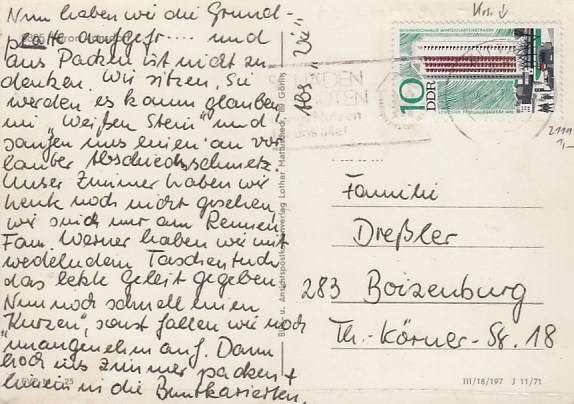 Nun haben wir die Grund-
platte aufgefr..... und
ans Packen ist nicht zu
denken. Wir sitzen, Sie
werden es kaum glauben,
im "Weißen Stein" und
saugen uns einen an vor
lauter Abschiedsschmerz.
Unser Zimmer haben wir
heute noch nicht gesehen
wir sind nur am Rennen.
Fam. Werner haben wir mit
wedelndem Taschentuch
das letzte Geleit gegeben.
Nun noch schnell einen
"Kurzen", sonst fallen wir noch
unangenehm auf. Dann
hoch ins Zimmer packen +
hinein in die Buntkarierten.
Bild- u. Ansichtspostkartenverlag Lothar
Görlitz
SCHÄDEN
10
DDR
Familie
Dreßler
283 Boizenburg
Th.-Körner-Str. 18
III/18/197 J 11/71